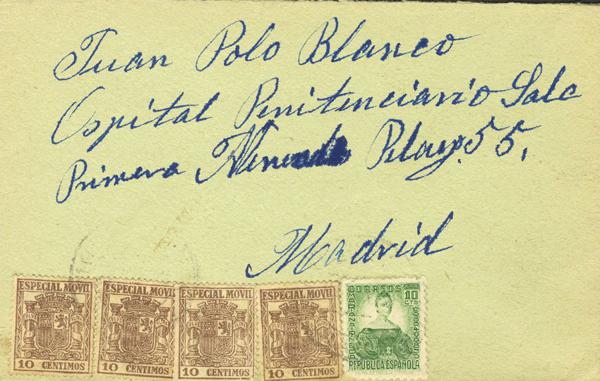 Juan Polo Blanco
Ospital Penitenciario Sala
Primera Pelayo 55.
Madrid
ESPECIAL MOVIL ESPECIAL MOVIL ESPECIAL MOVIL ESPECIAL MOVIL CORREOS 10 CTS
10 CENTIMOS 10 CENTIMOS 10 CENTIMOS 10 CENTIMOS REPUBLICA ESPAÑOLA